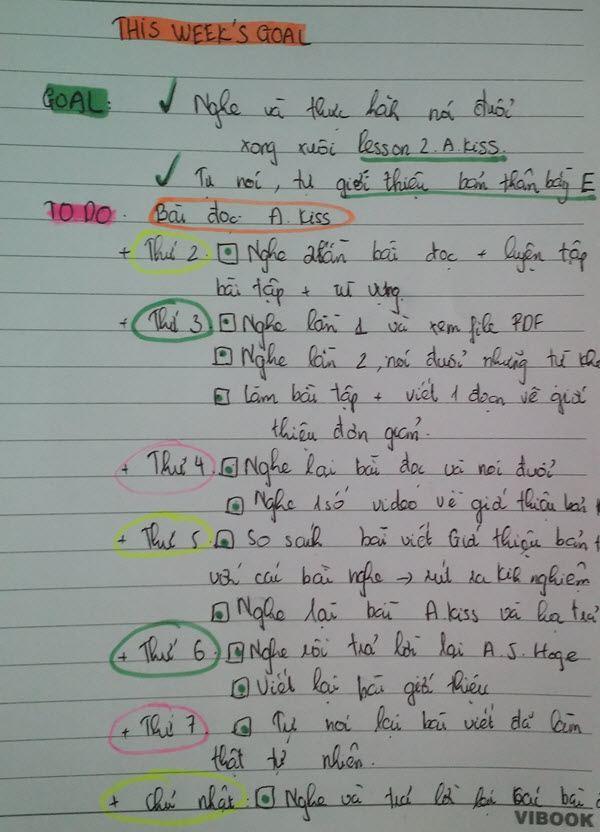 THIS WEEK'S GOAL
GOAL: ✓ Nghe và thực hành nói đuổi
xong xuôi lesson 2. A. Kiss.
✓ Tự nói, tự giới thiệu bản thân bằng E
TO DO: Bài đọc: A. Kiss
+ Thứ 2: Nghe 2 lần bài đọc + luyện tập
bài tập + từ vựng.
+ Thứ 3: Nghe lần 1 và xem file PDF
Nghe lần 2, nói đuổi những từ
Làm bài tập + viết 1 đoạn về giới
thiệu đơn giản.
+ Thứ 4: Nghe lại bài đọc và nói đuổi
Nghe 1 số video về giới thiệu
+ Thứ 5: So sánh bài viết Giới thiệu bản
với các bài nghe → rút ra kinh nghiệm
Nghe lại bài A. Kiss và
+ Thứ 6: Nghe rồi trả lời lại A. J. Hoge
Viết lại bài giới thiệu
+ Thứ 7: Tự nói lại bài viết đã làm
thật tự nhiên.
+ Chủ nhật: Nghe và trả lời bài
VIBOOK